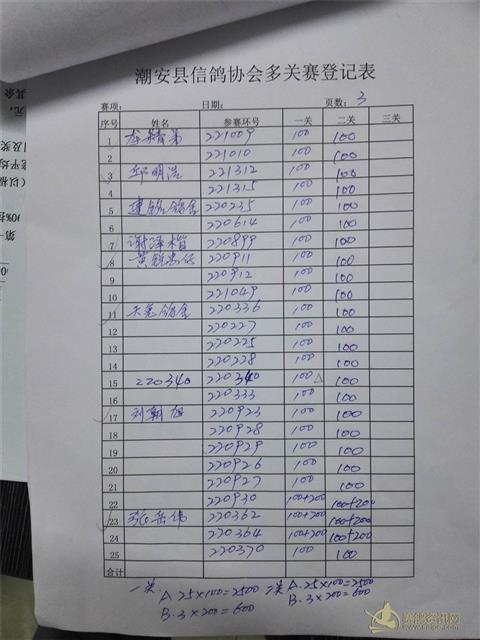 潮安县信鸽协会多关赛登记表
赛项: 日期: 页数: 3
序号 姓名 参赛环号 一关 二关 三关
1 221009 100 100
2 221010 100 100
3 邱明浩 221312 100 100
4 221315 100 100
5 建铭鸽舍 220235 100 100
6 220614 100 100
7 谢泽楷 220899 100 100
8 黄锐忠 220911 100 100
9 220912 100 100
10 221049 100 100
11 天龙鸽舍 220336 100 100
12 220227 100 100
13 220225 100 100
14 220228 100 100
15 220340 220340 100 △ 100
16 220333 100 100
17 刘朝旭 220923 100 100
18 220928 100 100
19 220929 100 100
20 220926 100 100
21 220927 100 100
22 220930 100+200 100+200
23 张岳伟 220362 100+200 100+200
24 220364 100+200 100+200
25 220370 100 100
合计
一关 A. 25×100=2500 二关 A. 25×100=2500
B. 3×200=600 B. 3×200=600